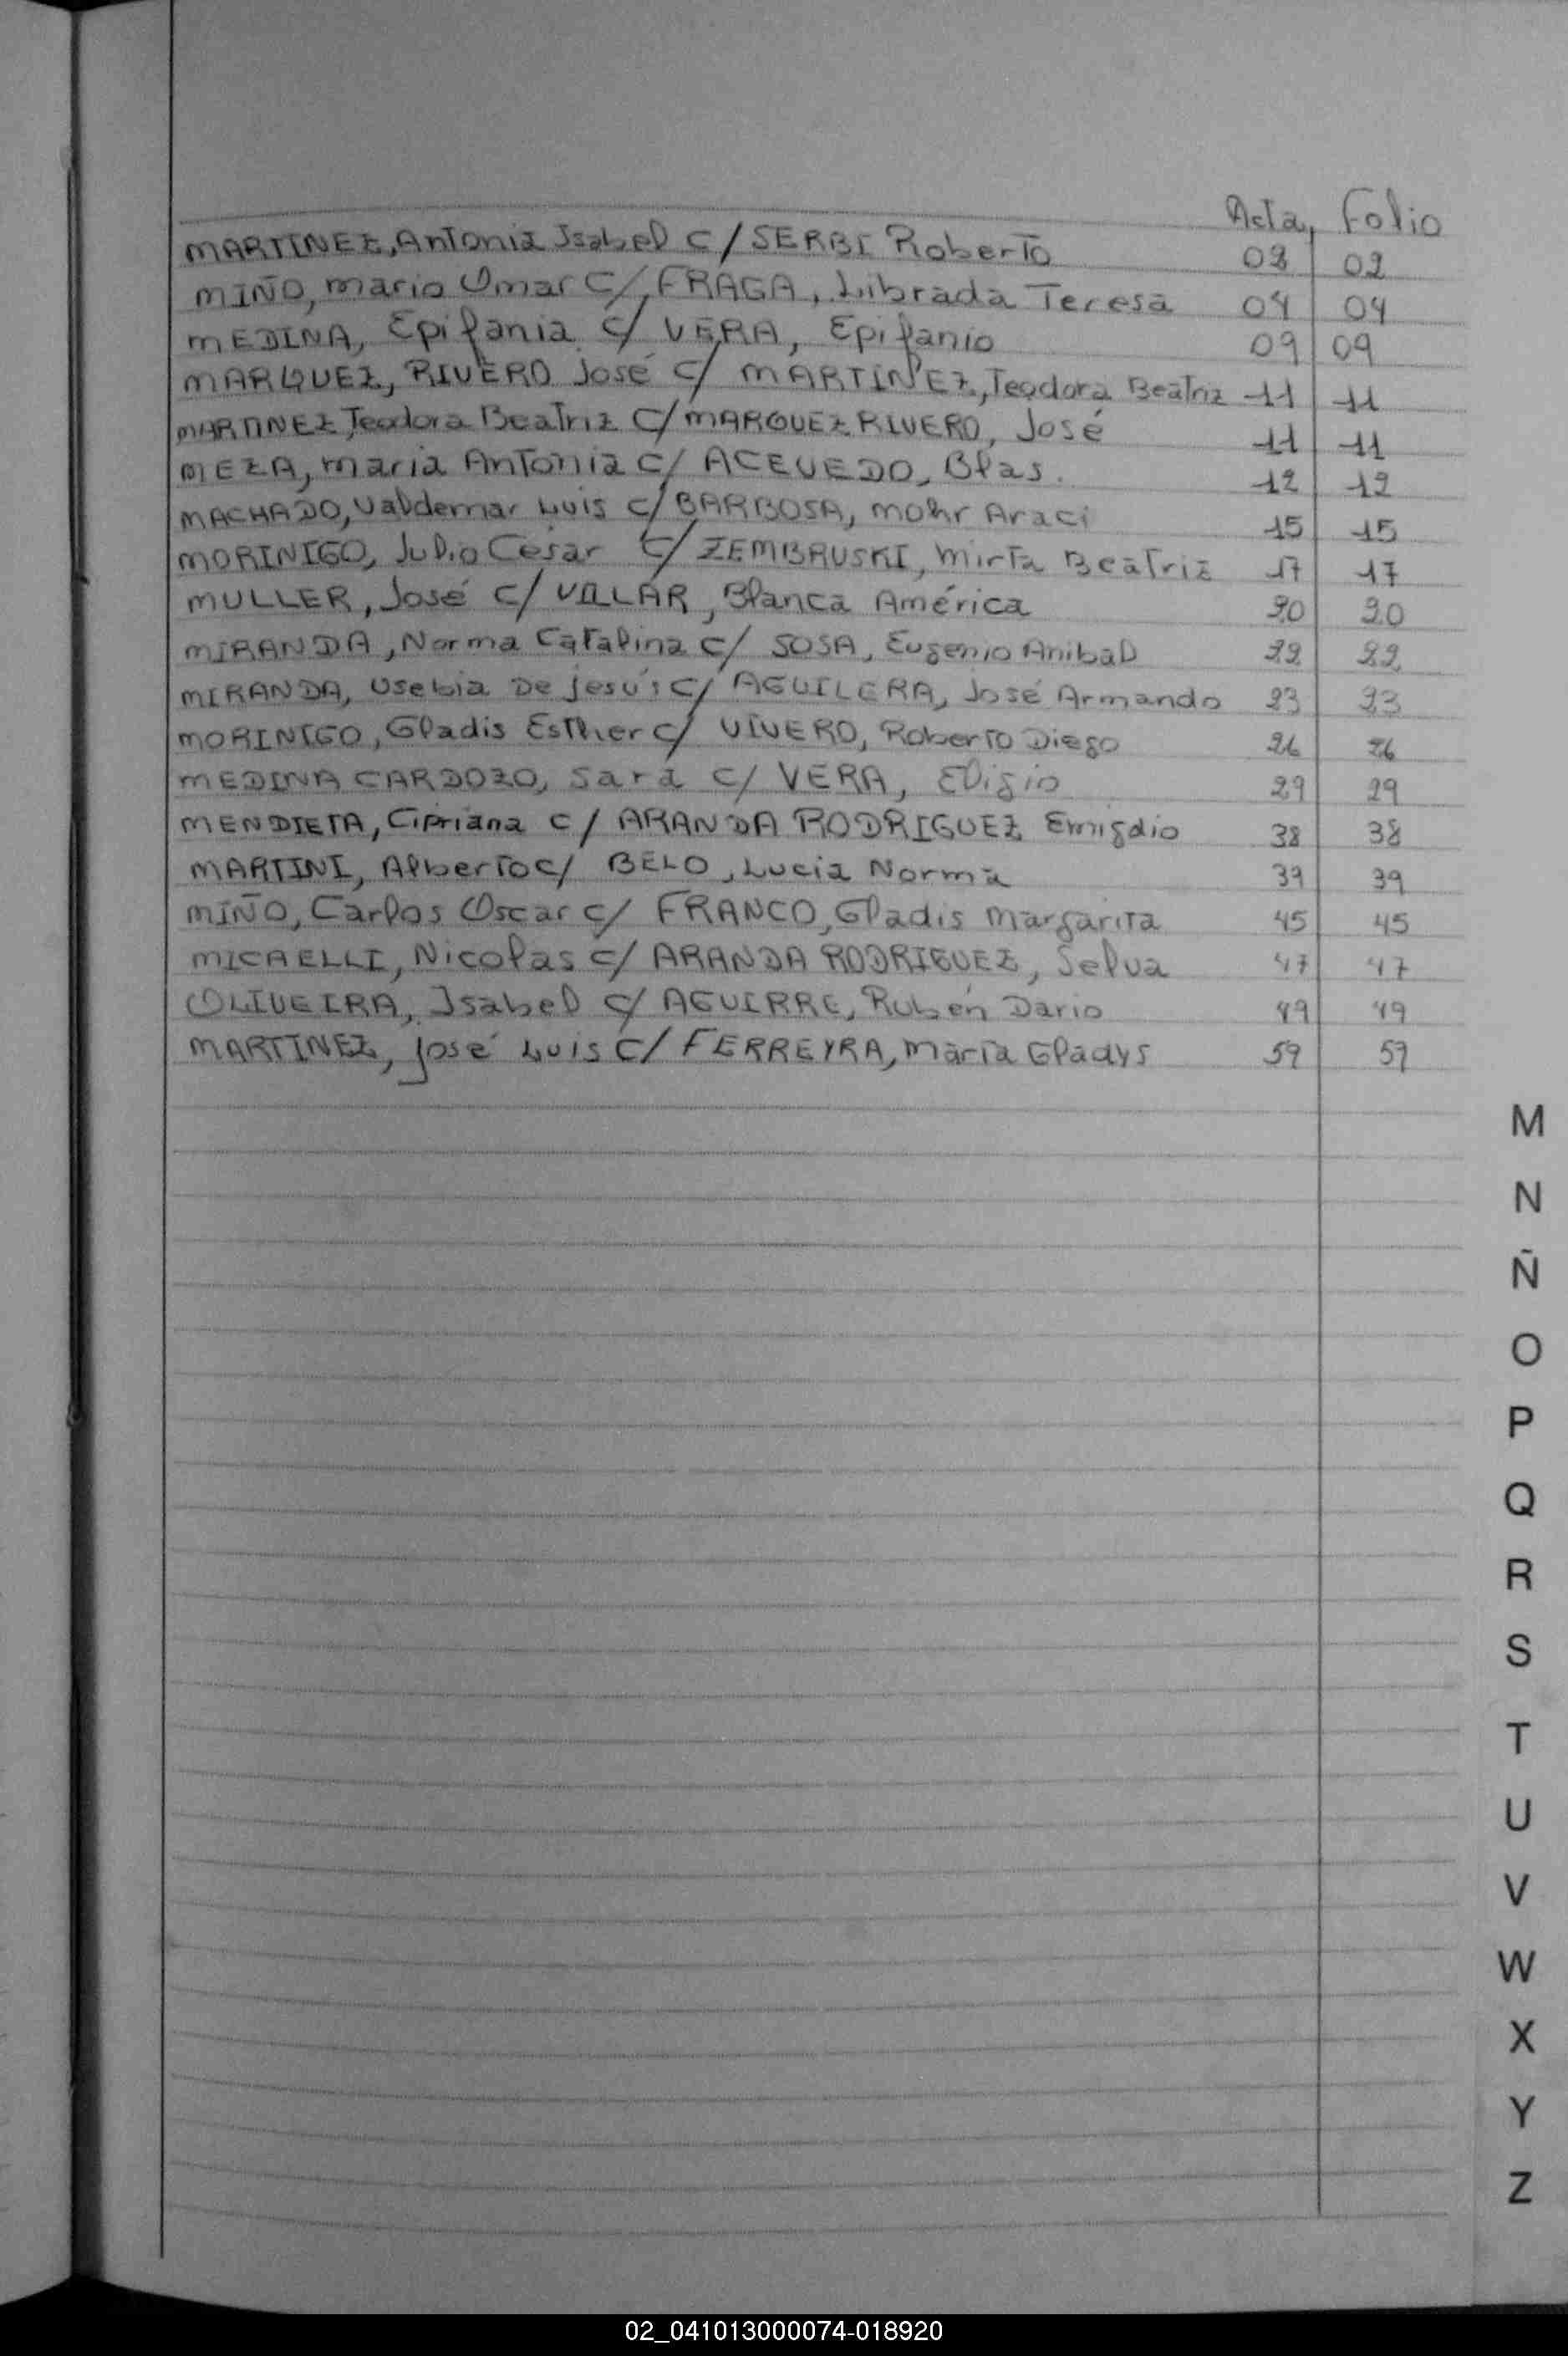 Acta, Folio
MARTINEZ, Antonia Isabel c/ SERBI Roberto 02 02
MIÑO, Mario Omar c/ FRAGA, Librada Teresa 04 04
MEDINA, Epifania c/ VERA, Epifanio 09 09
MARQUEZ, RIVERO José c/ MARTINEZ, Teodora Beatriz 11 11
MARTINEZ, Teodora Beatriz c/ MARQUEZ RIVERO, José 11 11
MEZA, Maria Antonia c/ ACEVEDO, Blas. 12 12
MACHADO, Valdemar Luis c/ BARBOSA, Mohr Araci 15 15
MORINIGO, Julio Cesar c/ ZEMBRUSKI, Mirta Beatriz 17 17
MULLER, José c/ VILLAR, Blanca América 20 20
MIRANDA, Norma Catalina c/ SOSA, Eugenio Anibal 22 22
MIRANDA, Usebia De Jesús c/ AGUILERA, José Armando 23 23
MORINIGO, Gladis Esther c/ VIVERO, Roberto Diego 26 26
MEDINA CARDOZO, Sara c/ VERA, Eligio 29 29
MENDIETA, Cipriana c/ ARANDA RODRIGUEZ Emigdio 38 38
MARTINI, Alberto c/ BELO, Lucia Norma 39 39
MIÑO, Carlos Oscar c/ FRANCO, Gladis Margarita 45 45
MICAELLI, Nicolas c/ ARANDA RODRIGUEZ, Selva 47 47
OLIVEIRA, Isabel c/ AGUIRRE, Rubén Dario 49 49
MARTINEZ, José Luis c/ FERREYRA, Maria Gladys 59 59
M
N
Ñ
O
P
Q
R
S
T
U
V
W
X
Y
Z
02_041013000074-018920